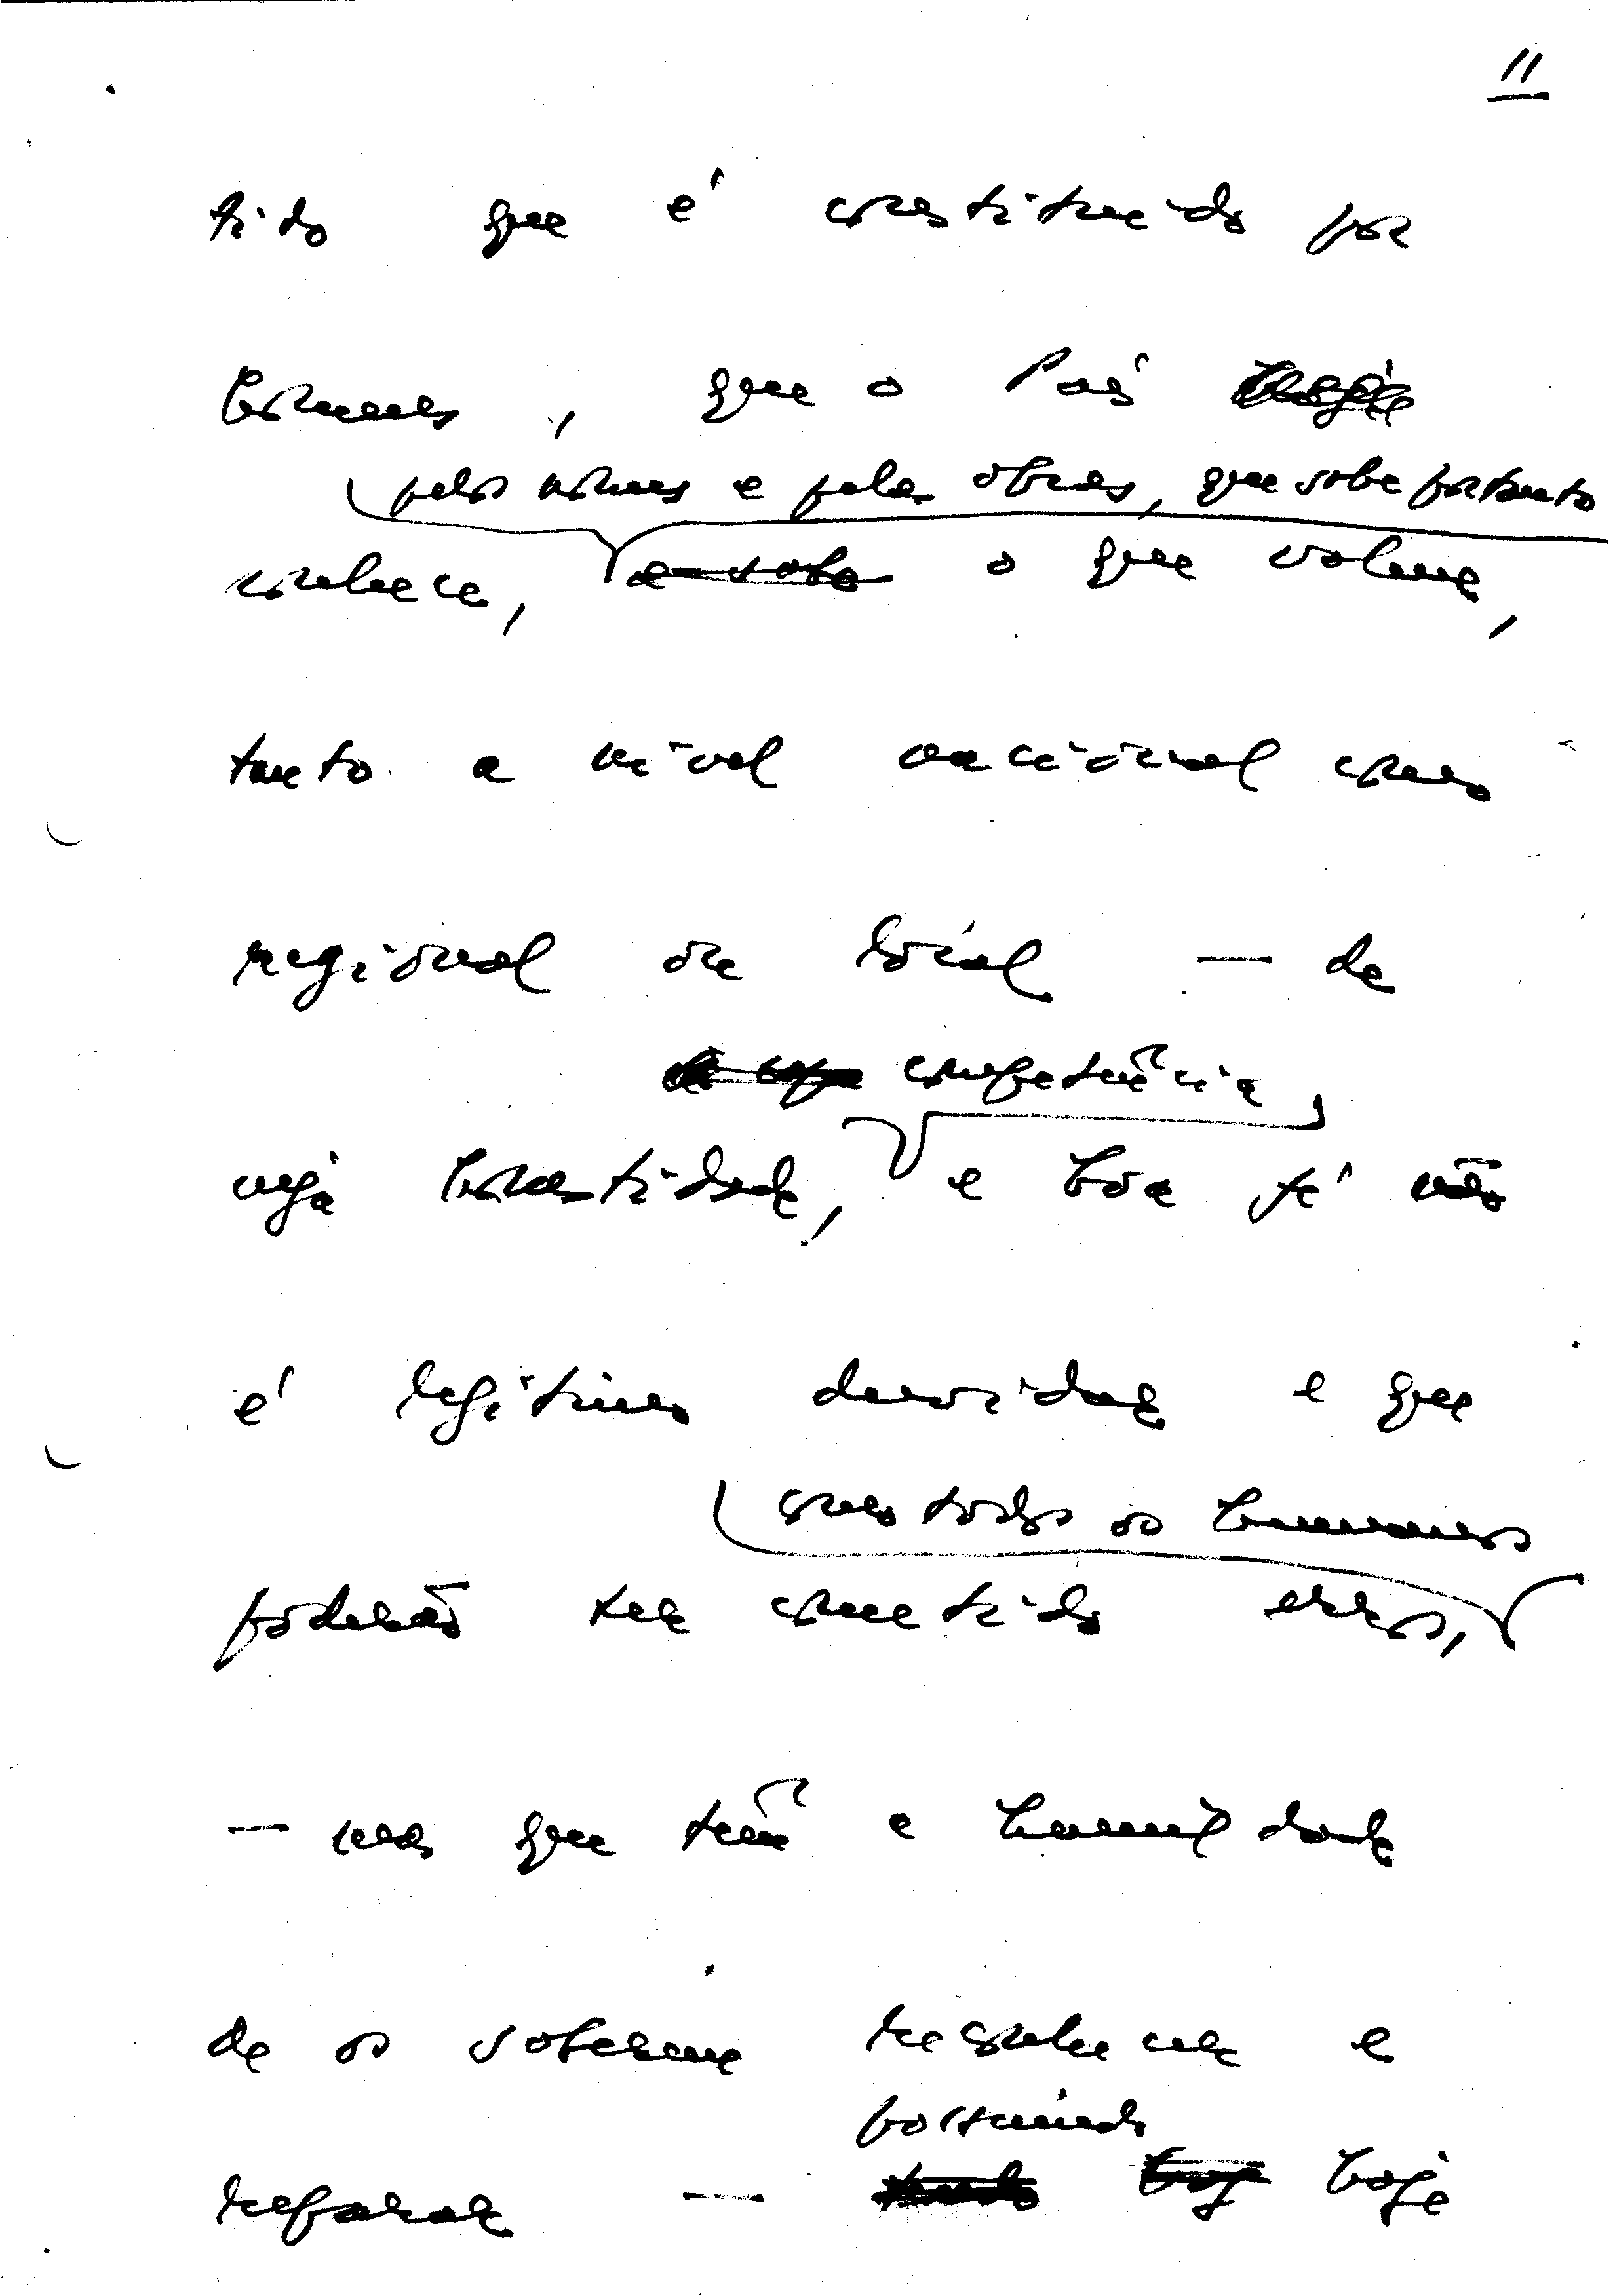 11
tido que é constituido por
homens, que o País
pelos nomes e pelas obras, que sabe portanto
conhece, e sabe o que valem,
tanto a nível nacional como
regional ou local — de
competência
cuja honestidade, e boa fé não
é legítimo duvidar e que
como todos os humanos
poderão ter cometido erros,
— mas que têm a humildade
de os saberem reconhecer e
possuindo
reparar — hoje hoje